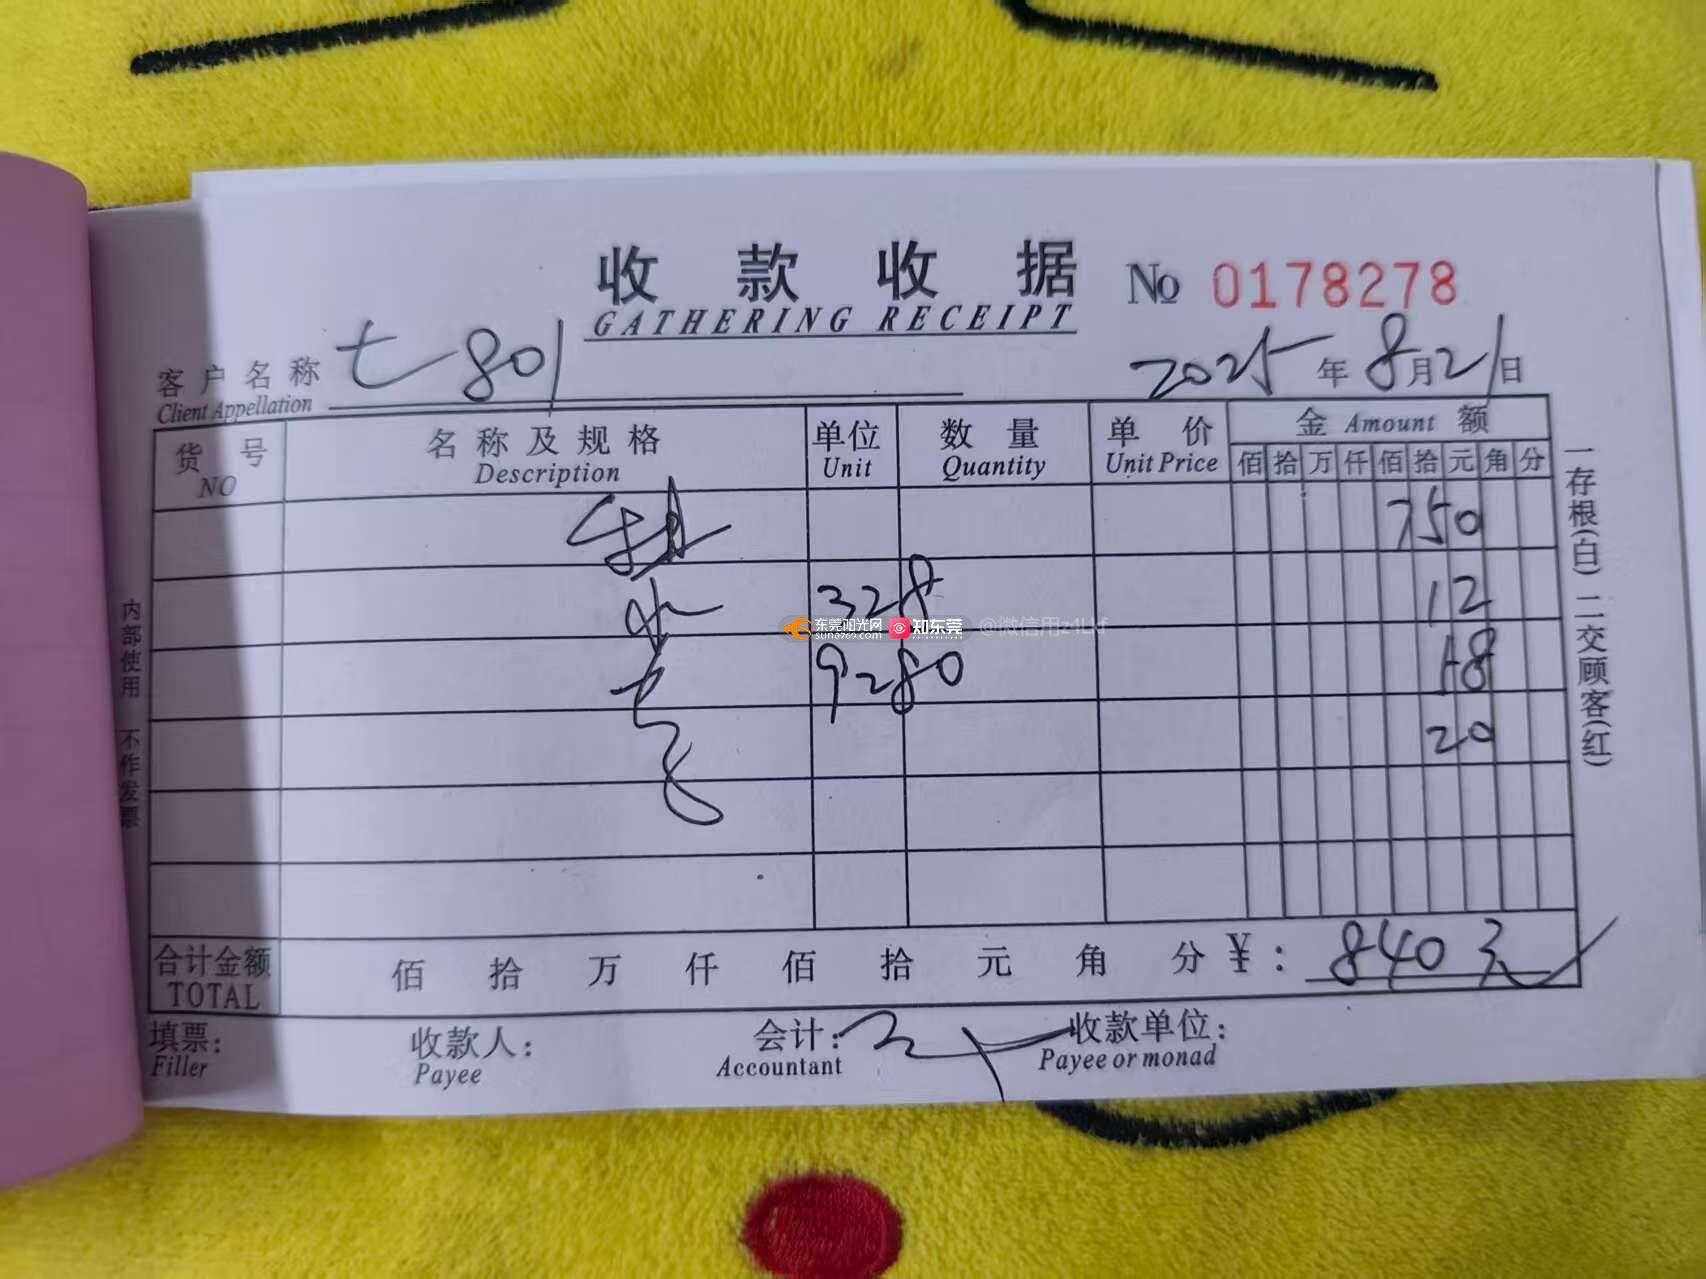 收款收据
GATHERING RECEIPT
No 0178278
客户名称 七801
Client Appellation
2025年8月21日
货号 名称及规格 单位 数量 单价 金 Amount 额
NO Description Unit Quantity Unit Price 佰拾万仟佰拾元角分
750
水 328 12
9280
20
合计金额 佰 拾 万 仟 佰 拾 元 角 分 ¥: 840元
TOTAL
填票: 收款人: 会计: 收款单位:
Filler Payee Accountant Payee or monad
内部使用 不作发票
一存根(白)二交顾客(红)
东莞阳光网 知东莞
sun0769.com